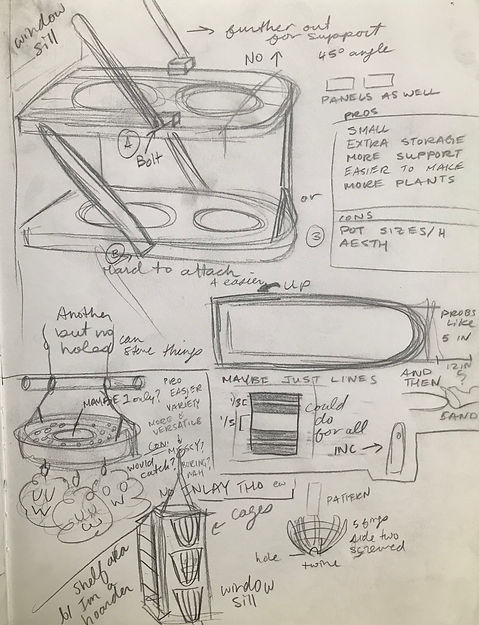 window
sill
→ further out
for support
NO ↑
45° angle
PANELS AS WELL
PROS
SMALL
EXTRA STORAGE
MORE SUPPORT
EASIER TO MAKE
MORE PLANTS
CONS
POT SIZES/H
AESTH
A
Bolt
or
3
B
Hard to attach
A easier
UP
Another
but no
holes
can
store things
MAYBE JUST LINES
PROBS
LIKE
5 IN
12 IN
?
AND
THEN
SAND
MAYBE 1 only?
PRO
EASIER
VARIETY
MORE
VERSATILE
CON:
would
catch?
MESSY?
BORING?
1/3
1/3
could
do
for all
INC →
NO INLAY THO
← cages
PATTERN
hole
twine
side two
screwed
window
sill
Shelf aka
I'm a
hoarder